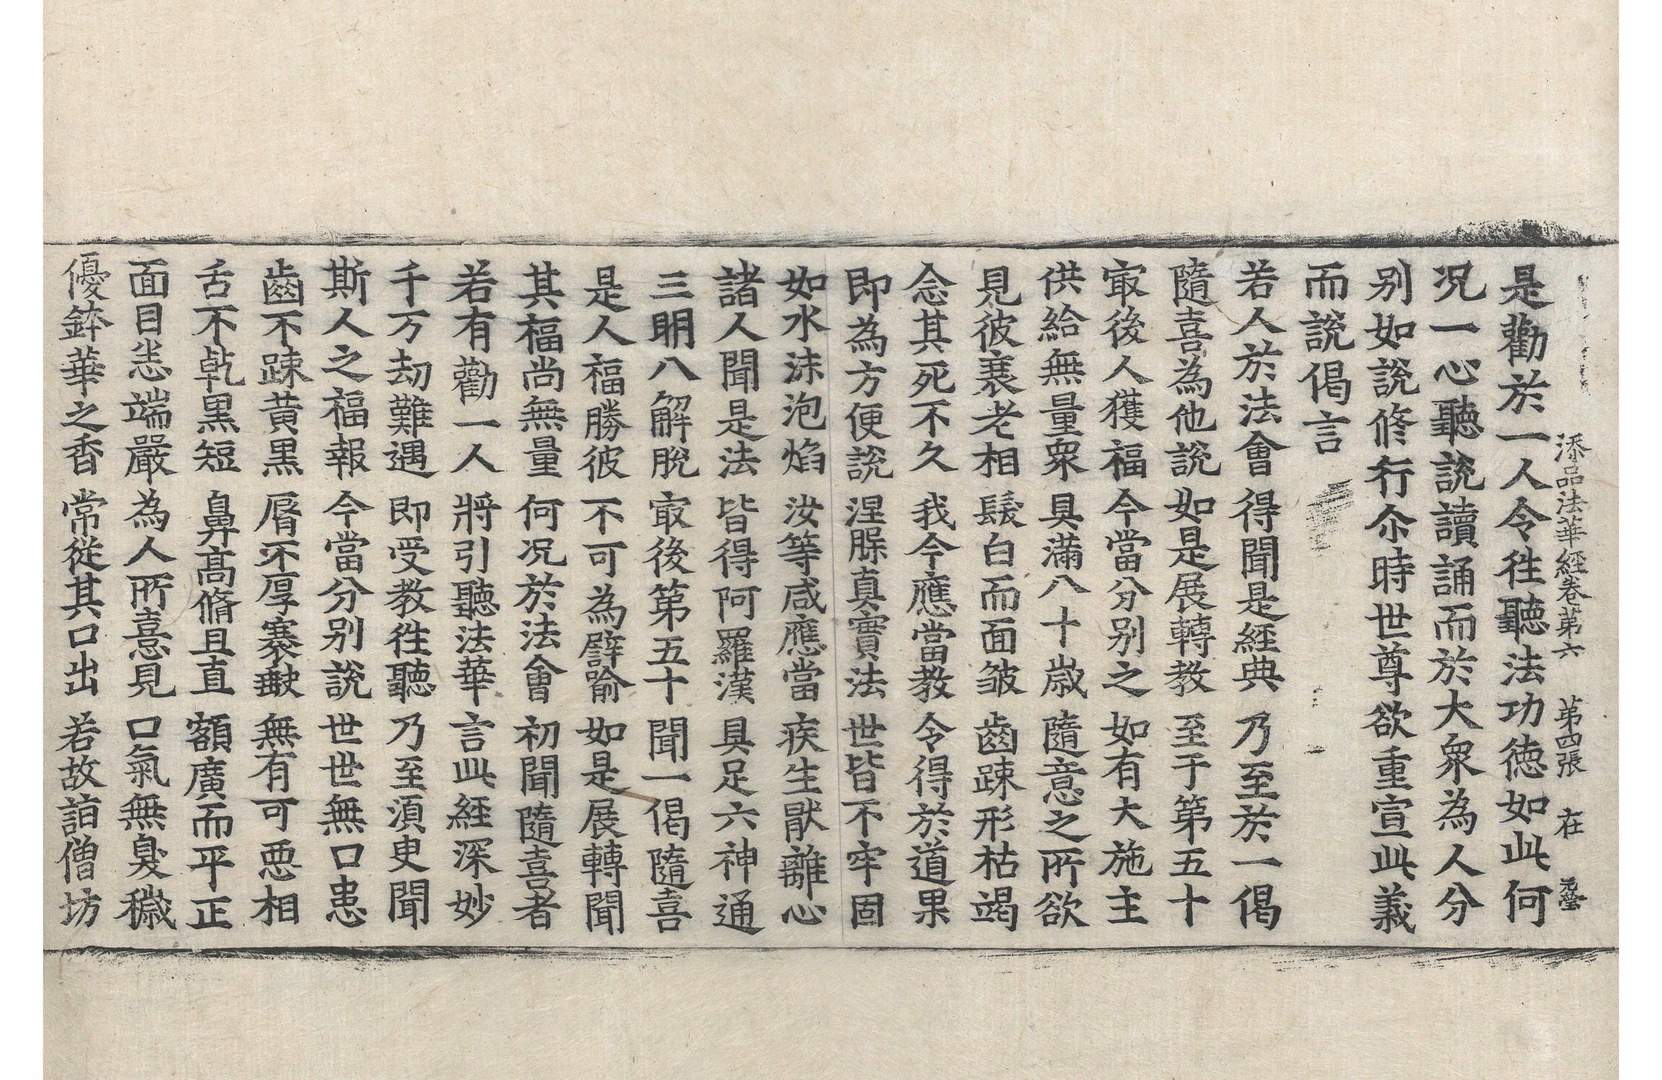 添品法華経卷第六 第四張 在
是勸於一人令徃聽法功徳如此何
况一心聽說讀誦而於大衆為人分
别如說修行尒時世尊欲重宣此義
而說偈言
若人於法會 得聞是經典 乃至於一偈
隨喜為他說 如是展轉教 至于第五十
㝡後人獲福 今當分别之 如有大施主
供給無量衆 具滿八十歳 隨意之所欲
見彼衰老相 髮白而面皺 齒踈形枯竭
念其死不久 我今應當教 令得於道果
即為方便說 涅膟真實法 世皆不牢固
如水沫泡焰 汝等咸應當 疾生猒離心
諸人聞是法 皆得阿羅漢 具足六神通
三明八解脫 㝡後第五十 聞一偈隨喜
是人福勝彼 不可為譬喻 如是展轉聞
其福尚無量 何况於法會 初聞隨喜者
若有勸一人 將引聽法華 言此經深妙
千万劫難遇 即受教徃聽 乃至湏臾聞
斯人之福報 今當分别說 世世無口患
齒不踈黃黒 脣不厚褰缺 無有可惡相
舌不乹黒短 鼻髙脩且直 額廣而平正
面目悉端嚴 為人所憙見 口氣無臭穢
優鉢華之香 常從其口出 若故詣僧坊